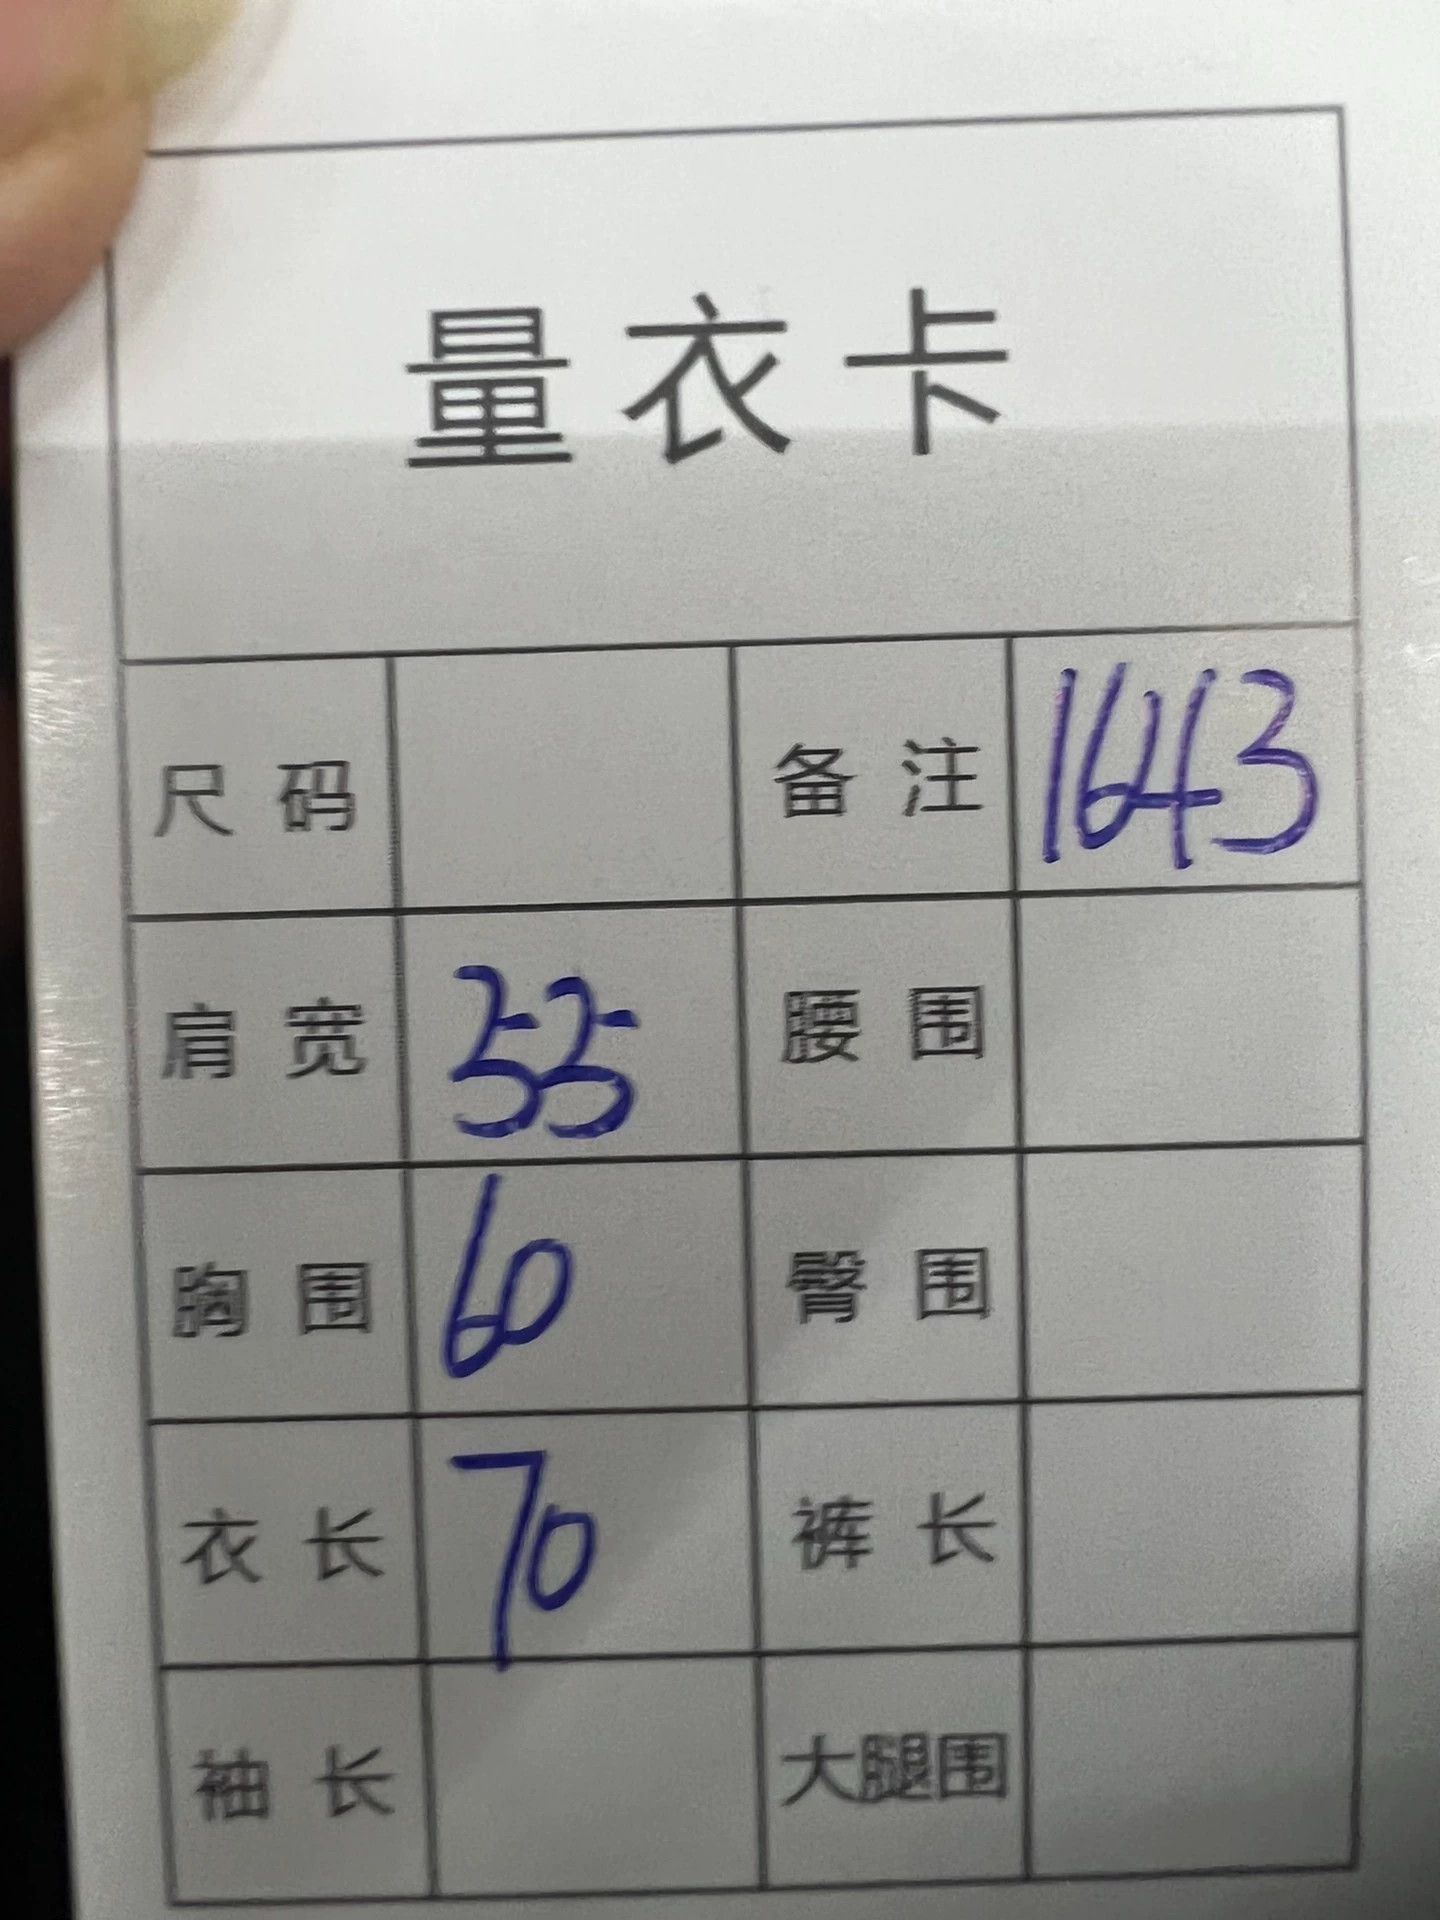 量衣卡
尺码 备注 1643
肩宽 55 腰围
胸围 60 臀围
衣长 70 裤长
袖长 大腿围